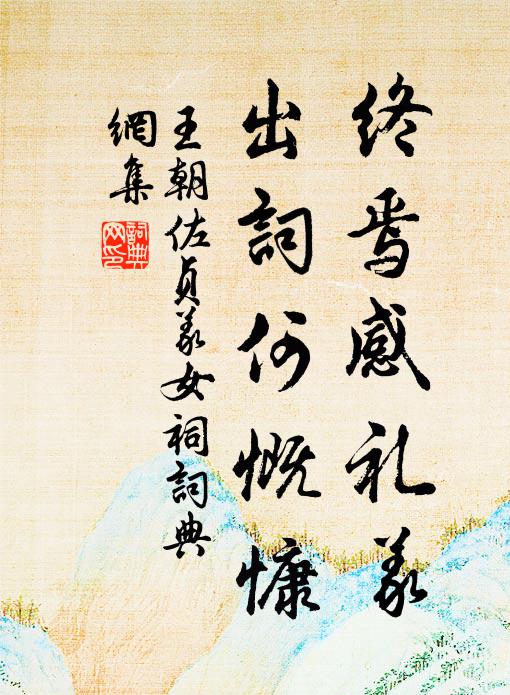 终焉感礼义
出词何慨慷
王朝佐贞义女祠词典
网集
词典
网印